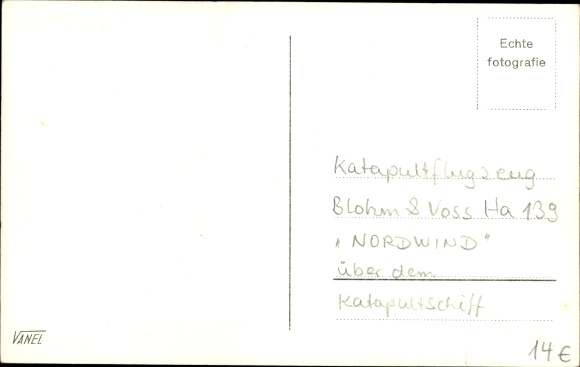 Echte
fotografie
Katapultflugzeug
Blohm & Voss Ha 139
„NORDWIND"
über dem
Katapultschiff
VANEL
14€